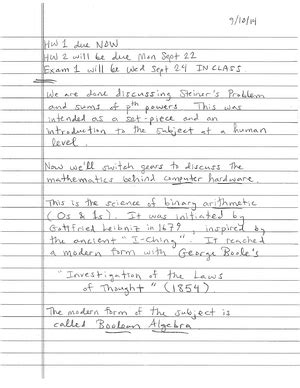 9/10/14
HW 1 due NOW
HW 2 will be due Mon Sept 22
Exam 1 will be Wed Sept 24 IN CLASS.
We are done discussing Steiner's Problem
and sums of pth powers. This was
intended as a set-piece and an
introduction to the subject at a human
level.
Now we'll switch gears to discuss the
mathematics behind computer hardware.
This is the science of binary arithmetic
(0s & 1s). It was initiated by
Gottfried Leibniz in 1679, inspired by
the ancient "I-Ching". It reached
a modern form with George Boole's
"Investigation of the Laws
of Thought" (1854)
The modern form of the subject is
called Boolean Algebra.